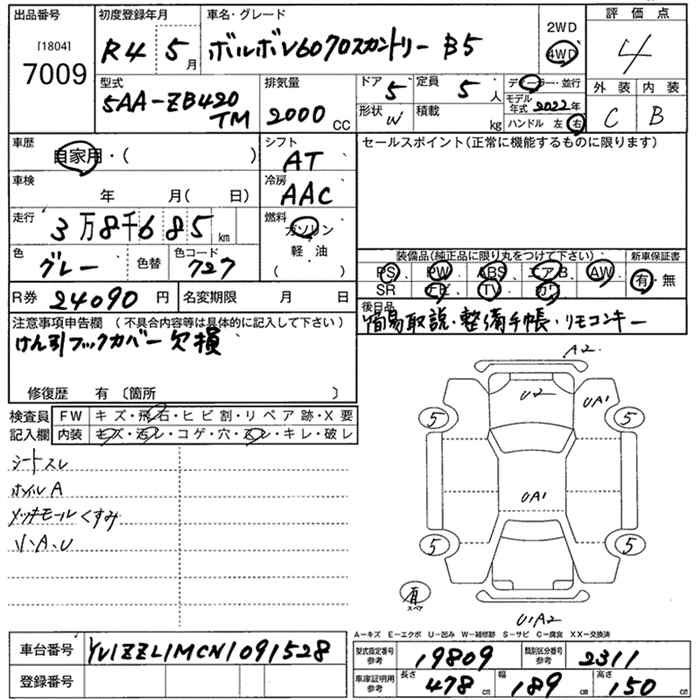 出品番号 初度登録年月 車名・グレード 2WD 評価点
[1804] 7009 R4 5月 ボルボV6070スカントリー B5 4WD 4
型式 排気量 ドア 5 定員 5人 ディーラー・並行 外装 内装
5AA-ZB420TM 2000CC 形状 W 積載 kg モデル年式 2022年 C B
ハンドル 左 右
車歴 自家用・( ) シフト AT セールスポイント(正常に機能するものに限ります)
車検 年 月( 日) 冷房 AAC
走行 3万8千685km 燃料 ガソリン 軽・油 ( )
色 グレー 色替 色コード 727 装備品(純正品に限り丸をつけて下さい) 新車保証書
PS PW ABS エアB AW 有・無
SR ナビ TV カワ
R券 24090円 名変期限 月 日 後日品
注意事項申告欄 (不具合内容等は具体的に記入して下さい) 簡易取説・整備手帳・リモコンキー
けん引フックカバー欠損
修復歴 有〔箇所 〕
検査員記入欄 FW キズ・飛石・ヒビ割・リペア跡・X要
内装 キズ・汚レ・コゲ・穴・スレ・キレ・破レ
A2
U2 UA1
5 5
シートスレ
ホイルA
メッキモールくすみ
小A、U
UA1
5 5
有 スペア
U1A2
A−キズ E−エクボ U−凹み W−補修跡 S−サビ C−腐食 XX−交換済
車台番号 YV1ZZL1MCN1091528 型式指定番号 参考 19809 類別区分番号 参考 2311
登録番号 車庫証明用 参考 長さ 478cm 幅 189cm 高さ 150cm